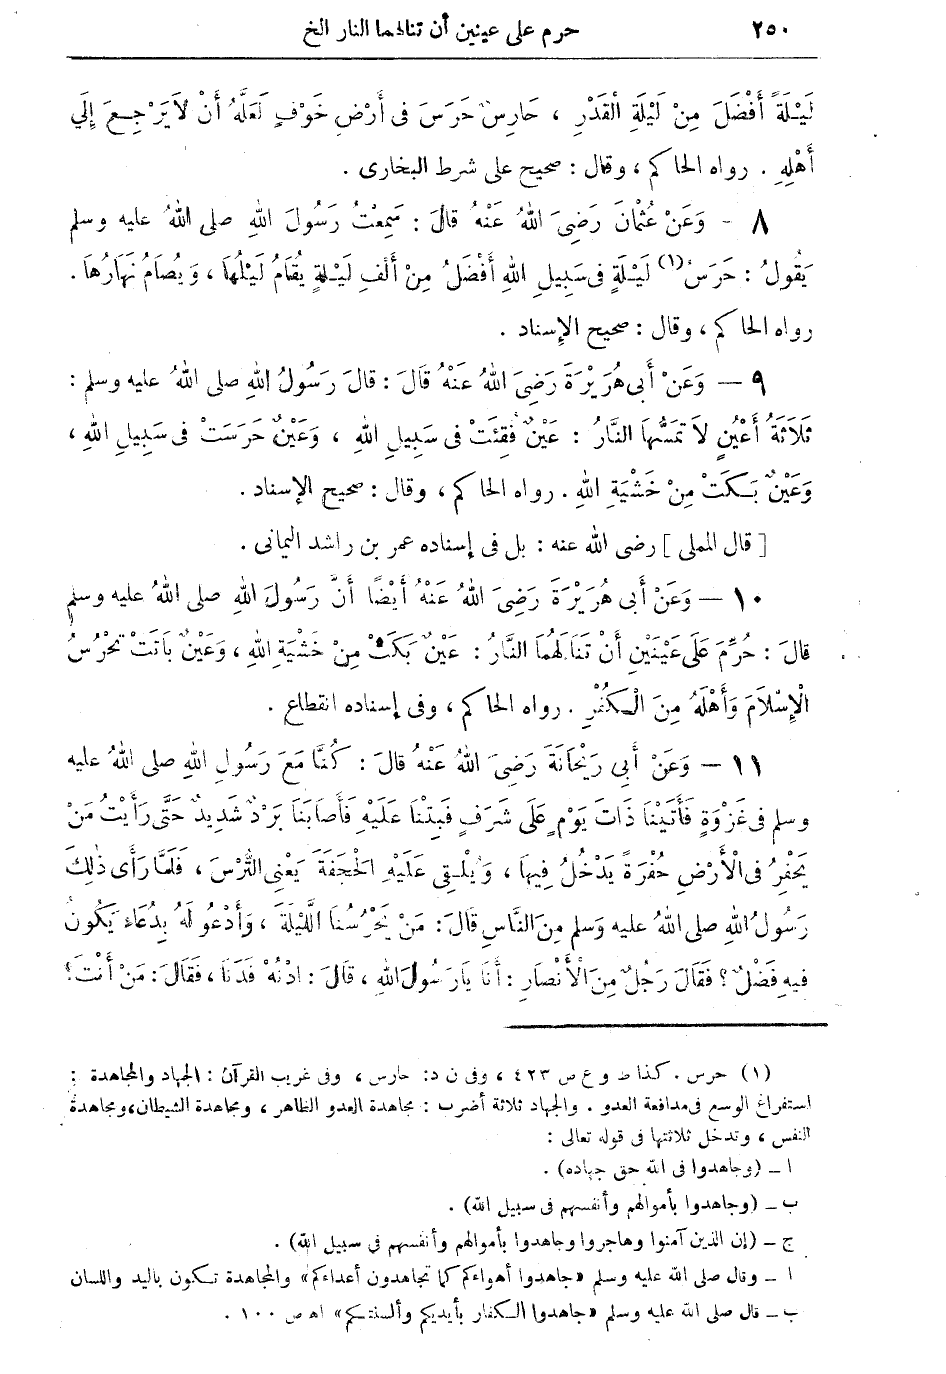 ٢٥٠ حرم على عينين أن تنالهما النار الخ
لَيْلَةً أَفْضَلَ مِنْ لَيْلَةِ الْقَدْرِ ، حَارِسٌ حَرَسَ فى أَرْضِ خَوْفٍ لَعَلَّهُ أَنْ لاَيَرْجِعَ إِلَي
أَهْلِهِ . رواه الحاكم ، وقال : صحيح على شرط البخارى .
٨ - وَعَنْ عُثْمَانَ رَضِىَ اللهُ عَنْهُ قَالَ : سَمِعْتُ رَسُولَ اللهِ صلى اللهُ عليه وسلم
يَقُولُ : حَرَسُ(١) لَيْلَةٍ فى سَبِيلِ اللهِ أَفْضَلُ مِنْ أَلْفِ لَيْلَةٍ يُقَامُ لَيْلُهَا ، وَيُصَامُ نَهَارُهَا .
رواه الحاكم ، وقال : صحيح الإسناد .
٩ — وَعَنْ أَبى هُرَيْرَةَ رَضِىَ اللهُ عَنْهُ قَالَ : قَالَ رَسُولُ اللهِ صلى اللهُ عليه وسلم :
ثَلاَثَةُ أَعْيُنٍ لاَ تَمَسُّهَا النَّارُ : عَيْنٌ فُقِئَتْ فى سَبِيلِ اللهِ ، وَعَيْنٌ حَرَسَتْ فى سَبِيلِ اللهِ ،
وَعَيْنٌ بَكَتْ مِنْ خَشْيَةِ اللهِ . رواه الحاكم ، وقال : صحيح الإسناد .
[ قال المملى ] رضى الله عنه : بل فى إسناده عمر بن راشد اليمانى .
١٠ — وَعَنْ أَبِى هُرَيْرَةَ رَضِىَ اللهُ عَنْهُ أَيْضًا أَنَّ رَسُولَ اللهِ صلى اللهُ عليه وسلم
قالَ : حُرِّمَ عَلَى عَيْنَيْنِ أَنْ تَنَالَهُمَا النَّارُ : عَيْنٌ بَكَتْ مِنْ خَشْيَةِ اللهِ ، وَعَيْنٌ بَاتَتْ تَحْرُسُ
الْإِسْلاَمَ وَأَهْلَهُ مِنَ الْكُفْرِ . رواه الحاكم ، وفى إسناده انقطاع .
١١ — وَعَنْ أَبِي رَيْحَانَةَ رَضِىَ اللهُ عَنْهُ قَالَ : كُنَّا مَعَ رَسُولِ اللهِ صلى اللهُ عليه
وسلم فى غَزْوَةٍ فَأَتَيْنَا ذَاتَ يَوْمٍ عَلَى شَرَفٍ فَبِتْنَا عَلَيْهِ فَأَصَابَنَا بَرْدٌ شَدِيدٌ حَتَّى رَأَيْتُ مَنْ
يَحْفِرُ فى الْأَرْضِ حُفْرَةً يَدْخُلُ فِيهَا ، وَيُلْقِى عَلَيْهِ الْحَجَفَةَ يَعْنِى التُّرْسَ ، فَلَمَّا رَأَى ذٰلِكَ
رَسُولُ اللهِ صلى اللهُ عليه وَسلم مِنَ النَّاسِ قَالَ : مَنْ يَحْرُسُنَا اللَّيْلَةَ ، وَأَدْعُو لَهُ بِدُعَاءٍ يَكُونُ
فيهِ فَضْلٌ ؟ فَقَالَ رَجُلٌ مِنَ الْأَنْصَارِ : أَنَا يَا رَسُولَ اللهِ ، قَالَ : ادْنُهْ فَدَنَا ، فَقَالَ : مَنْ أَنْتَ ؟
(١) حرس . كذا ط و ع ص ٤٢٣ ، وفى ن د : حارس ، وفى غريب القرآن : الجهاد والمجاهدة :
استفراغ الوسع فى مدافعة العدو . والجهاد ثلاثة أضرب : مجاهدة العدو الظاهر ، ومجاهدة الشيطان ، ومجاهدة
النفس ، وتدخل ثلاثتها فى قوله تعالى :
ا ــ (وجاهدوا فى الله حق جهاده) .
ب ــ (وجاهدوا بأموالهم وأنفسهم فى سبيل الله) .
ج ــ (إن الذين آمنوا وهاجروا وجاهدوا بأموالهم وأنفسهم في سبيل الله) .
ا ــ وقال صلى الله عليه وسلم «جاهدوا أهواءكم كما تجاهدون أعداءكم» والمجاهدة تكون باليد واللسان
ب ــ قال صلى الله عليه وسلم «جاهدوا الكفار بأيديكم وألسنتكم» اه ص ١٠٠ .